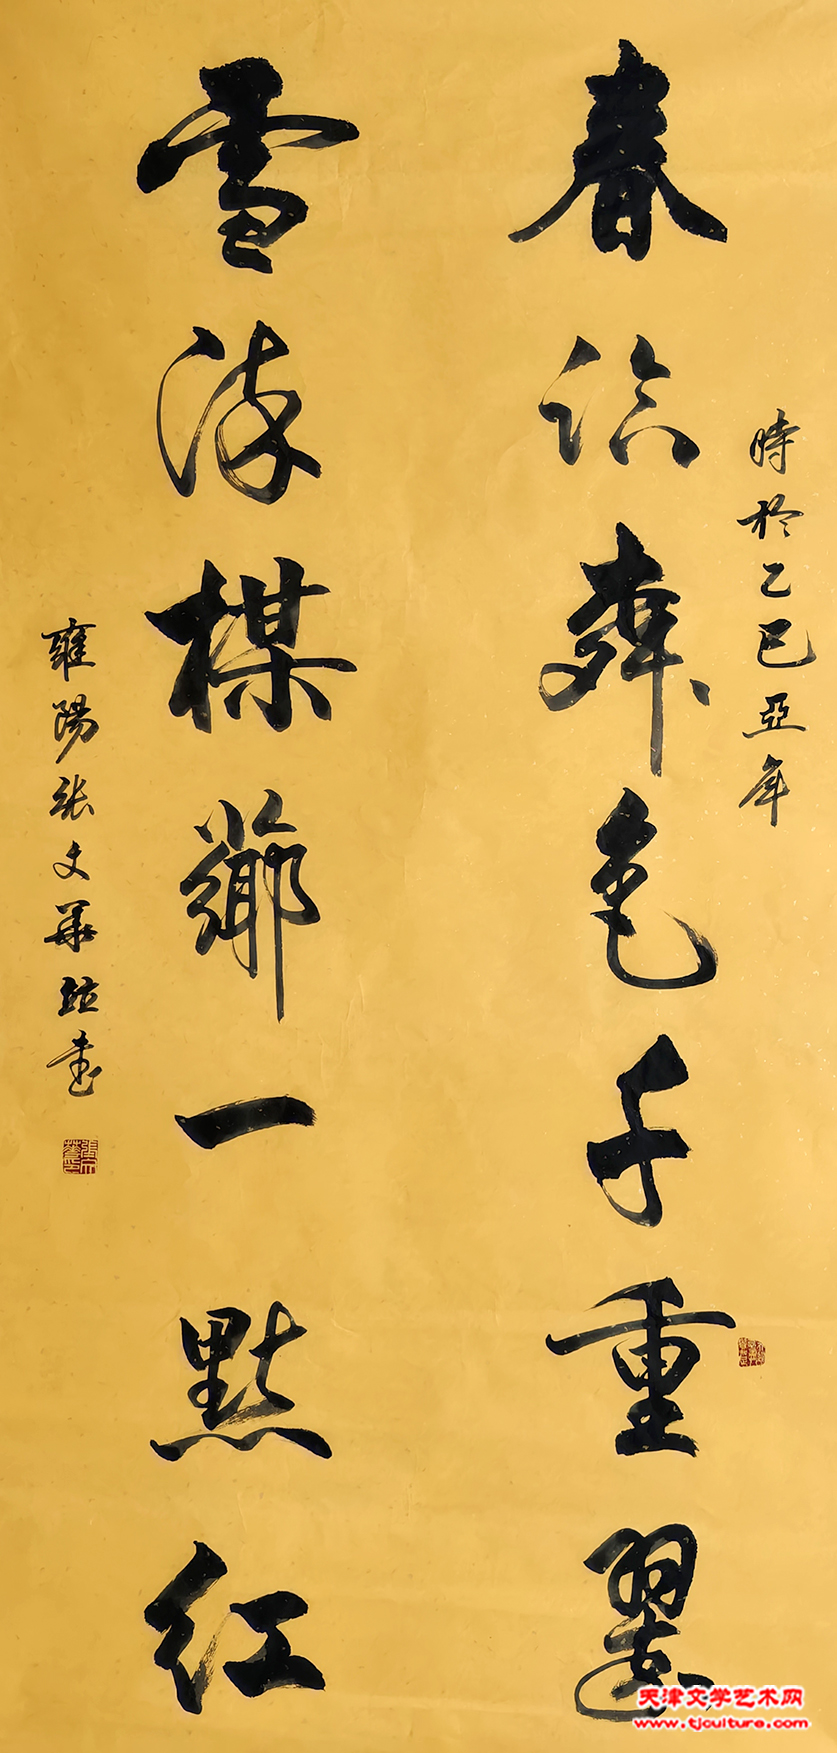 春臨舞色千重翠
時於乙巳亞年
雪深楳薌一點紅
雍陽張文華書
天津文学艺术网
www.tjculture.com